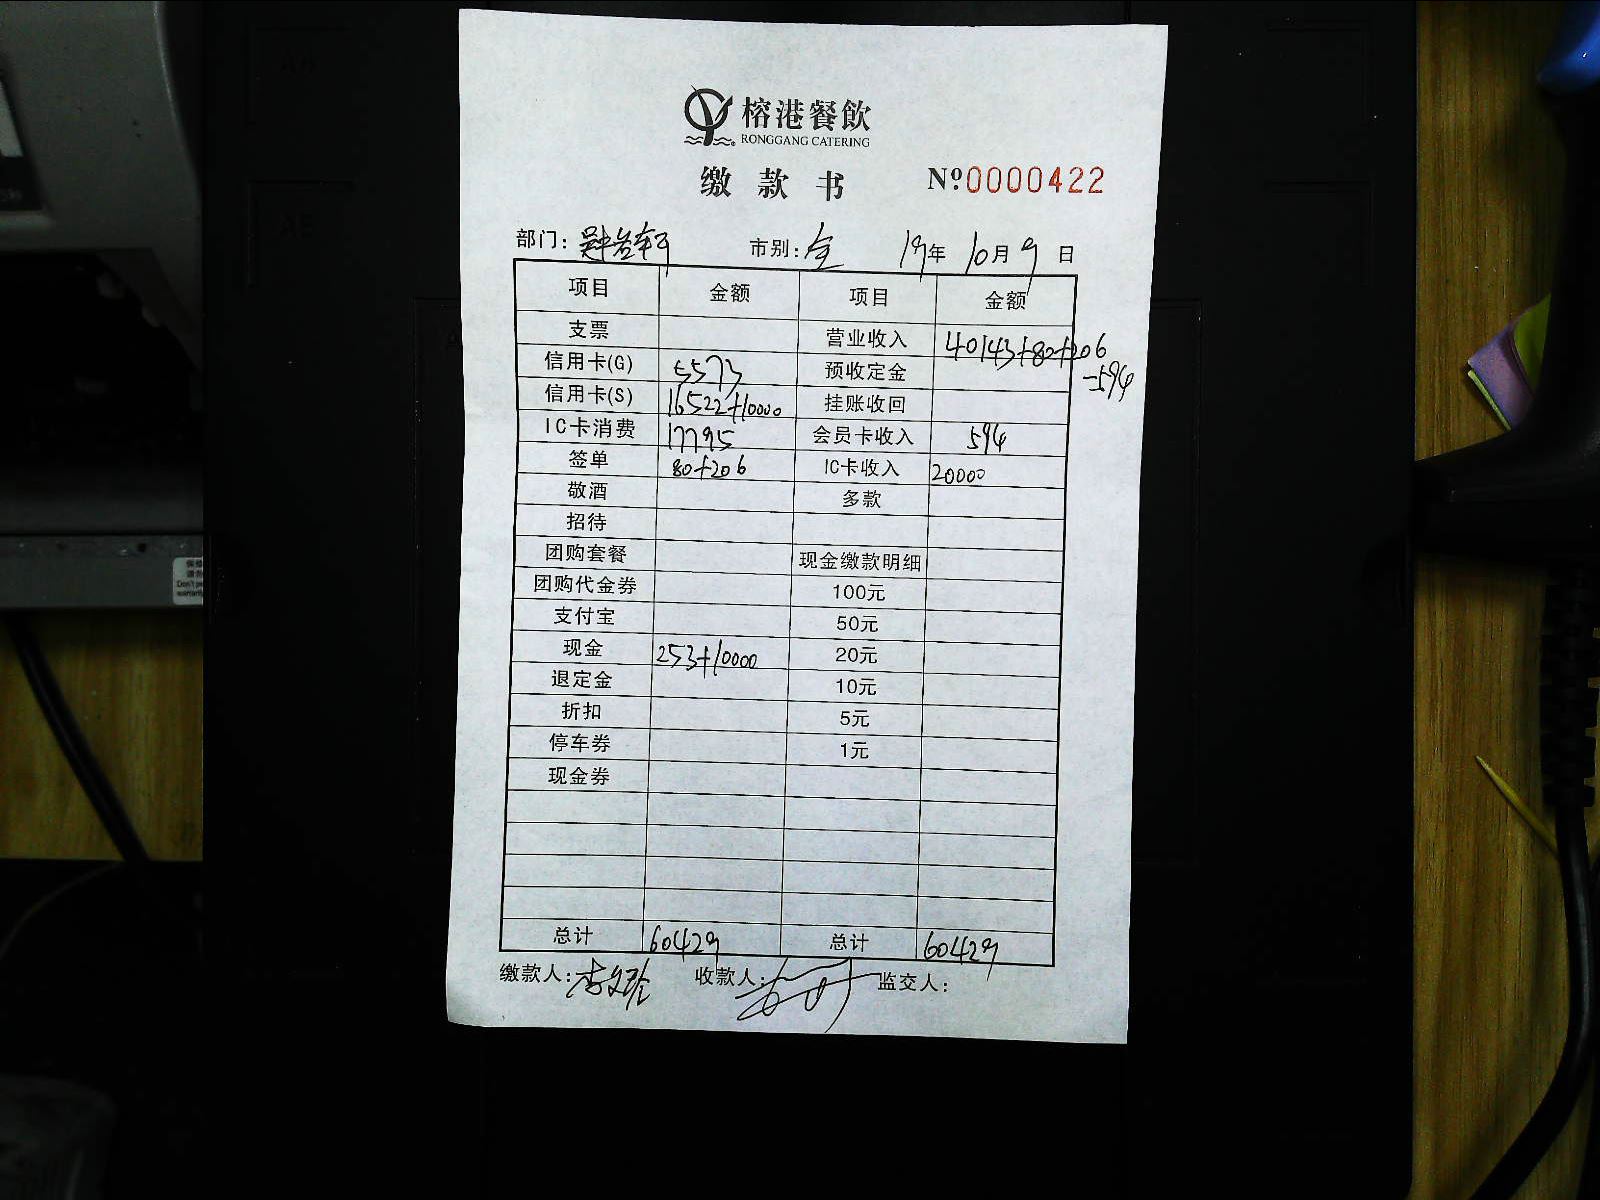 榕港餐飲
RONGGANG CATERING
缴款书 Nº0000422
部门: 市别:全 19年 10月 9日
项目 金额 项目 金额
支票 营业收入 40143+80+206
-594
信用卡(G) 5573 预收定金
信用卡(S) 16522+10000 挂账收回
IC卡消费 17795 会员卡收入 594
签单 80+206 IC卡收入 20000
敬酒 多款
招待
团购套餐 现金缴款明细
团购代金券 100元
支付宝 50元
现金 253+10000 20元
退定金 10元
折扣 5元
停车券 1元
现金券
总计 60429 总计 60429
缴款人: 收款人: 监交人: